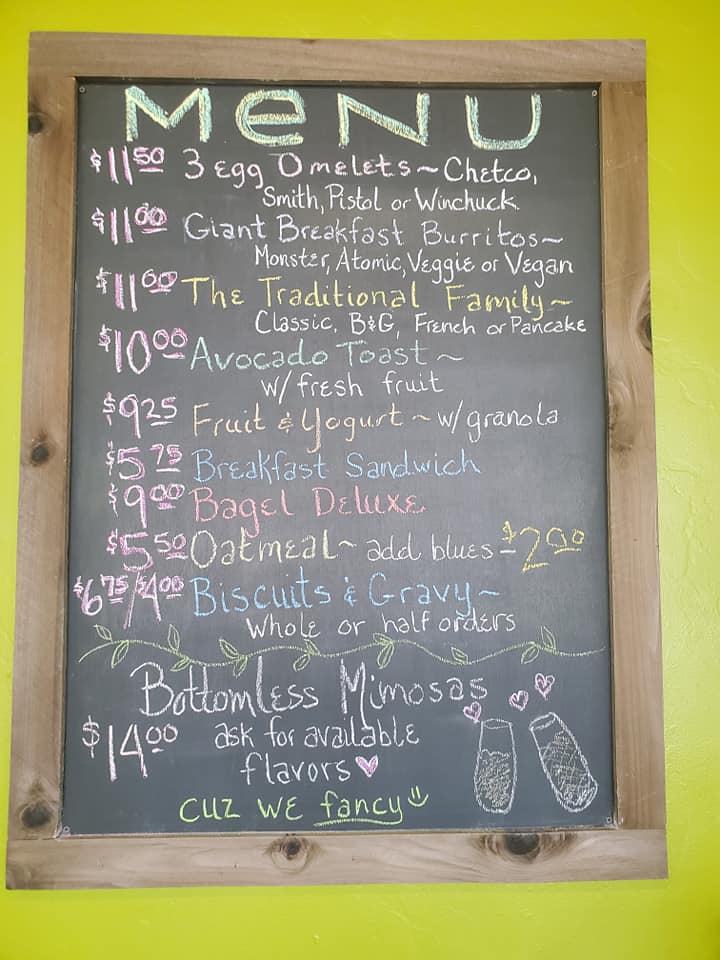 MENU
$11.50 3 egg Omelets ~ Chetco,
Smith, Pistol or Winchuck
$11.00 Giant Breakfast Burritos ~
Monster, Atomic, Veggie or Vegan
$11.00 The Traditional Family ~
Classic, B&G, French or Pancake
$10.00 Avocado Toast ~
w/ fresh fruit
$9.25 Fruit & Yogurt ~ w/ granola
$5.75 Breakfast Sandwich
$9.00 Bagel Deluxe
$5.50 Oatmeal ~ add blues - $2.00
$6.75/$4.00 Biscuits & Gravy ~
Whole or half orders
Bottomless Mimosas
$14.00 ask for available
flavors
cuz we fancy